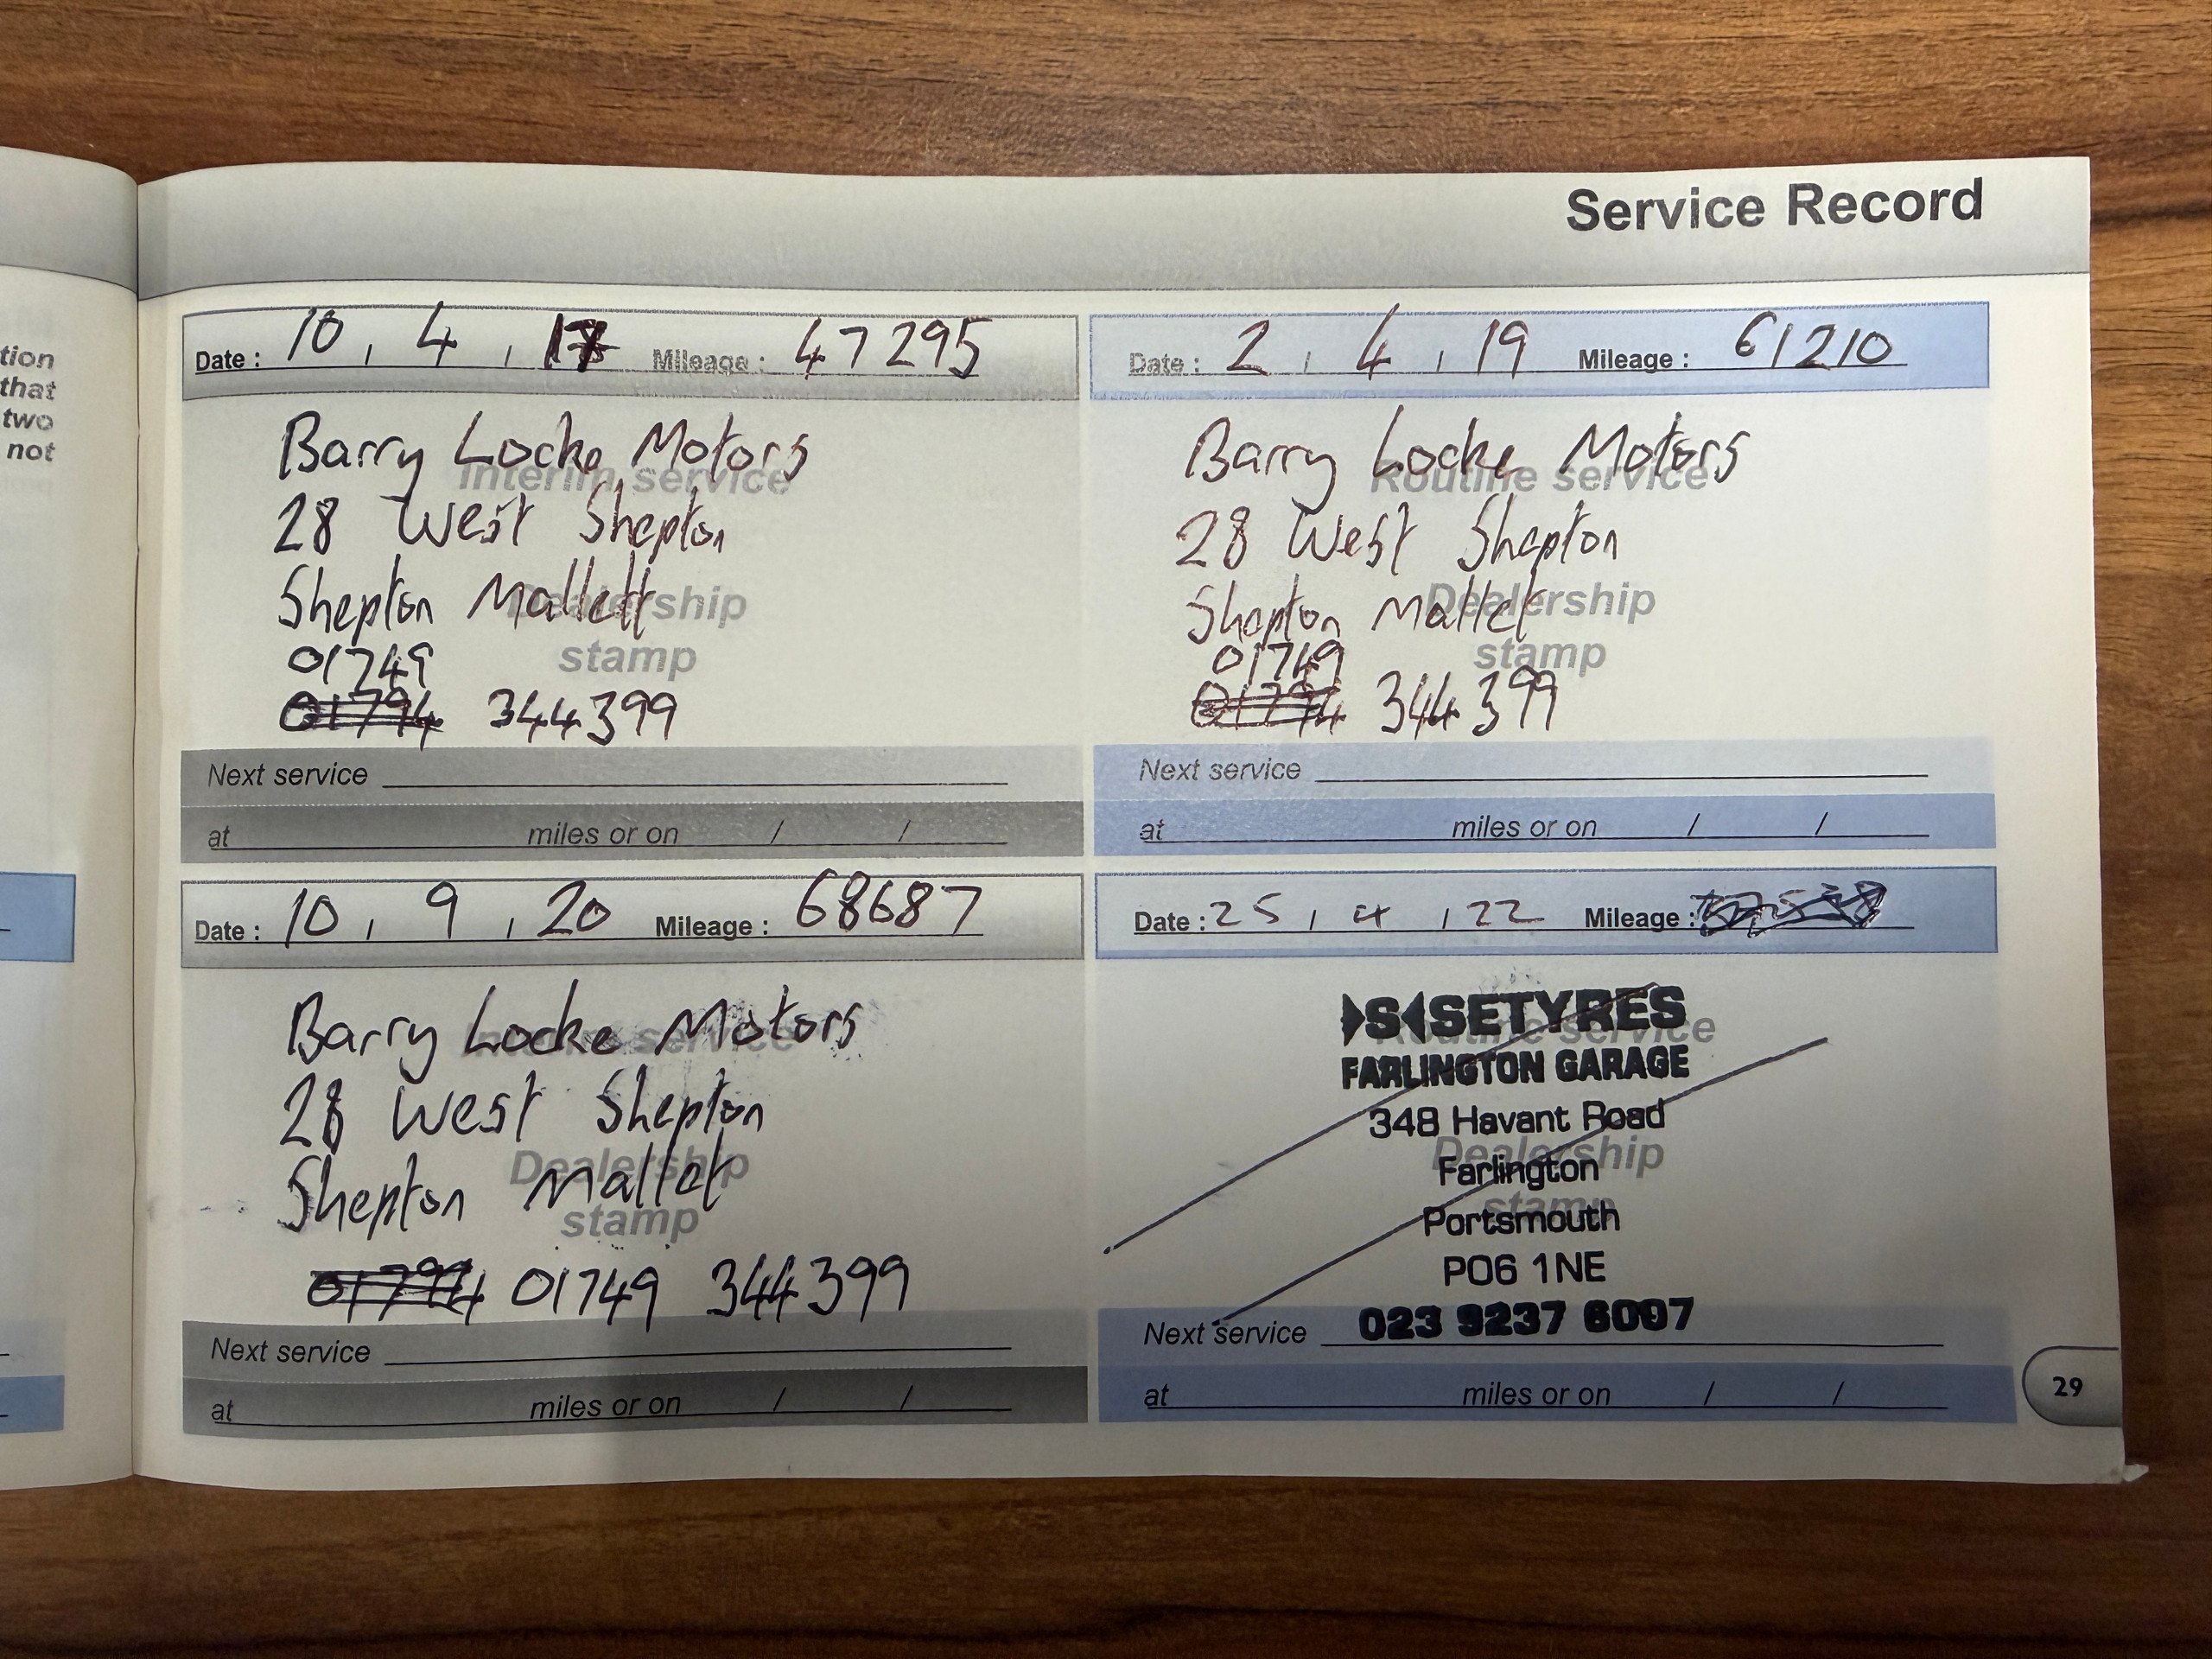 tion
that
two
not
Service Record
Date : 10 , 4 , 17 Mileage : 47295
Barry Locke Motors
Interim service
28 West Shepton
Shepton Mallett
Dealership
stamp
01749
01794 344399
Next service
at miles or on / /
Date : 2 , 4 , 19 Mileage : 61210
Barry Locke Motors
Routine service
28 West Shepton
Shepton Mallet
Dealership
stamp
01749
01794 344399
Next service
at miles or on / /
Date : 10 , 9 , 20 Mileage : 68687
Barry Locke Motors
28 West Shepton
Shepton Mallet
Dealership
stamp
01794 01749 344399
Next service
at miles or on / /
Date : 25 , 4 , 22 Mileage :
S SETYRES
Routine service
FARLINGTON GARAGE
348 Havant Road
Dealership
Farlington
stamp
Portsmouth
PO6 1NE
023 9237 6007
Next service
at miles or on / /
29